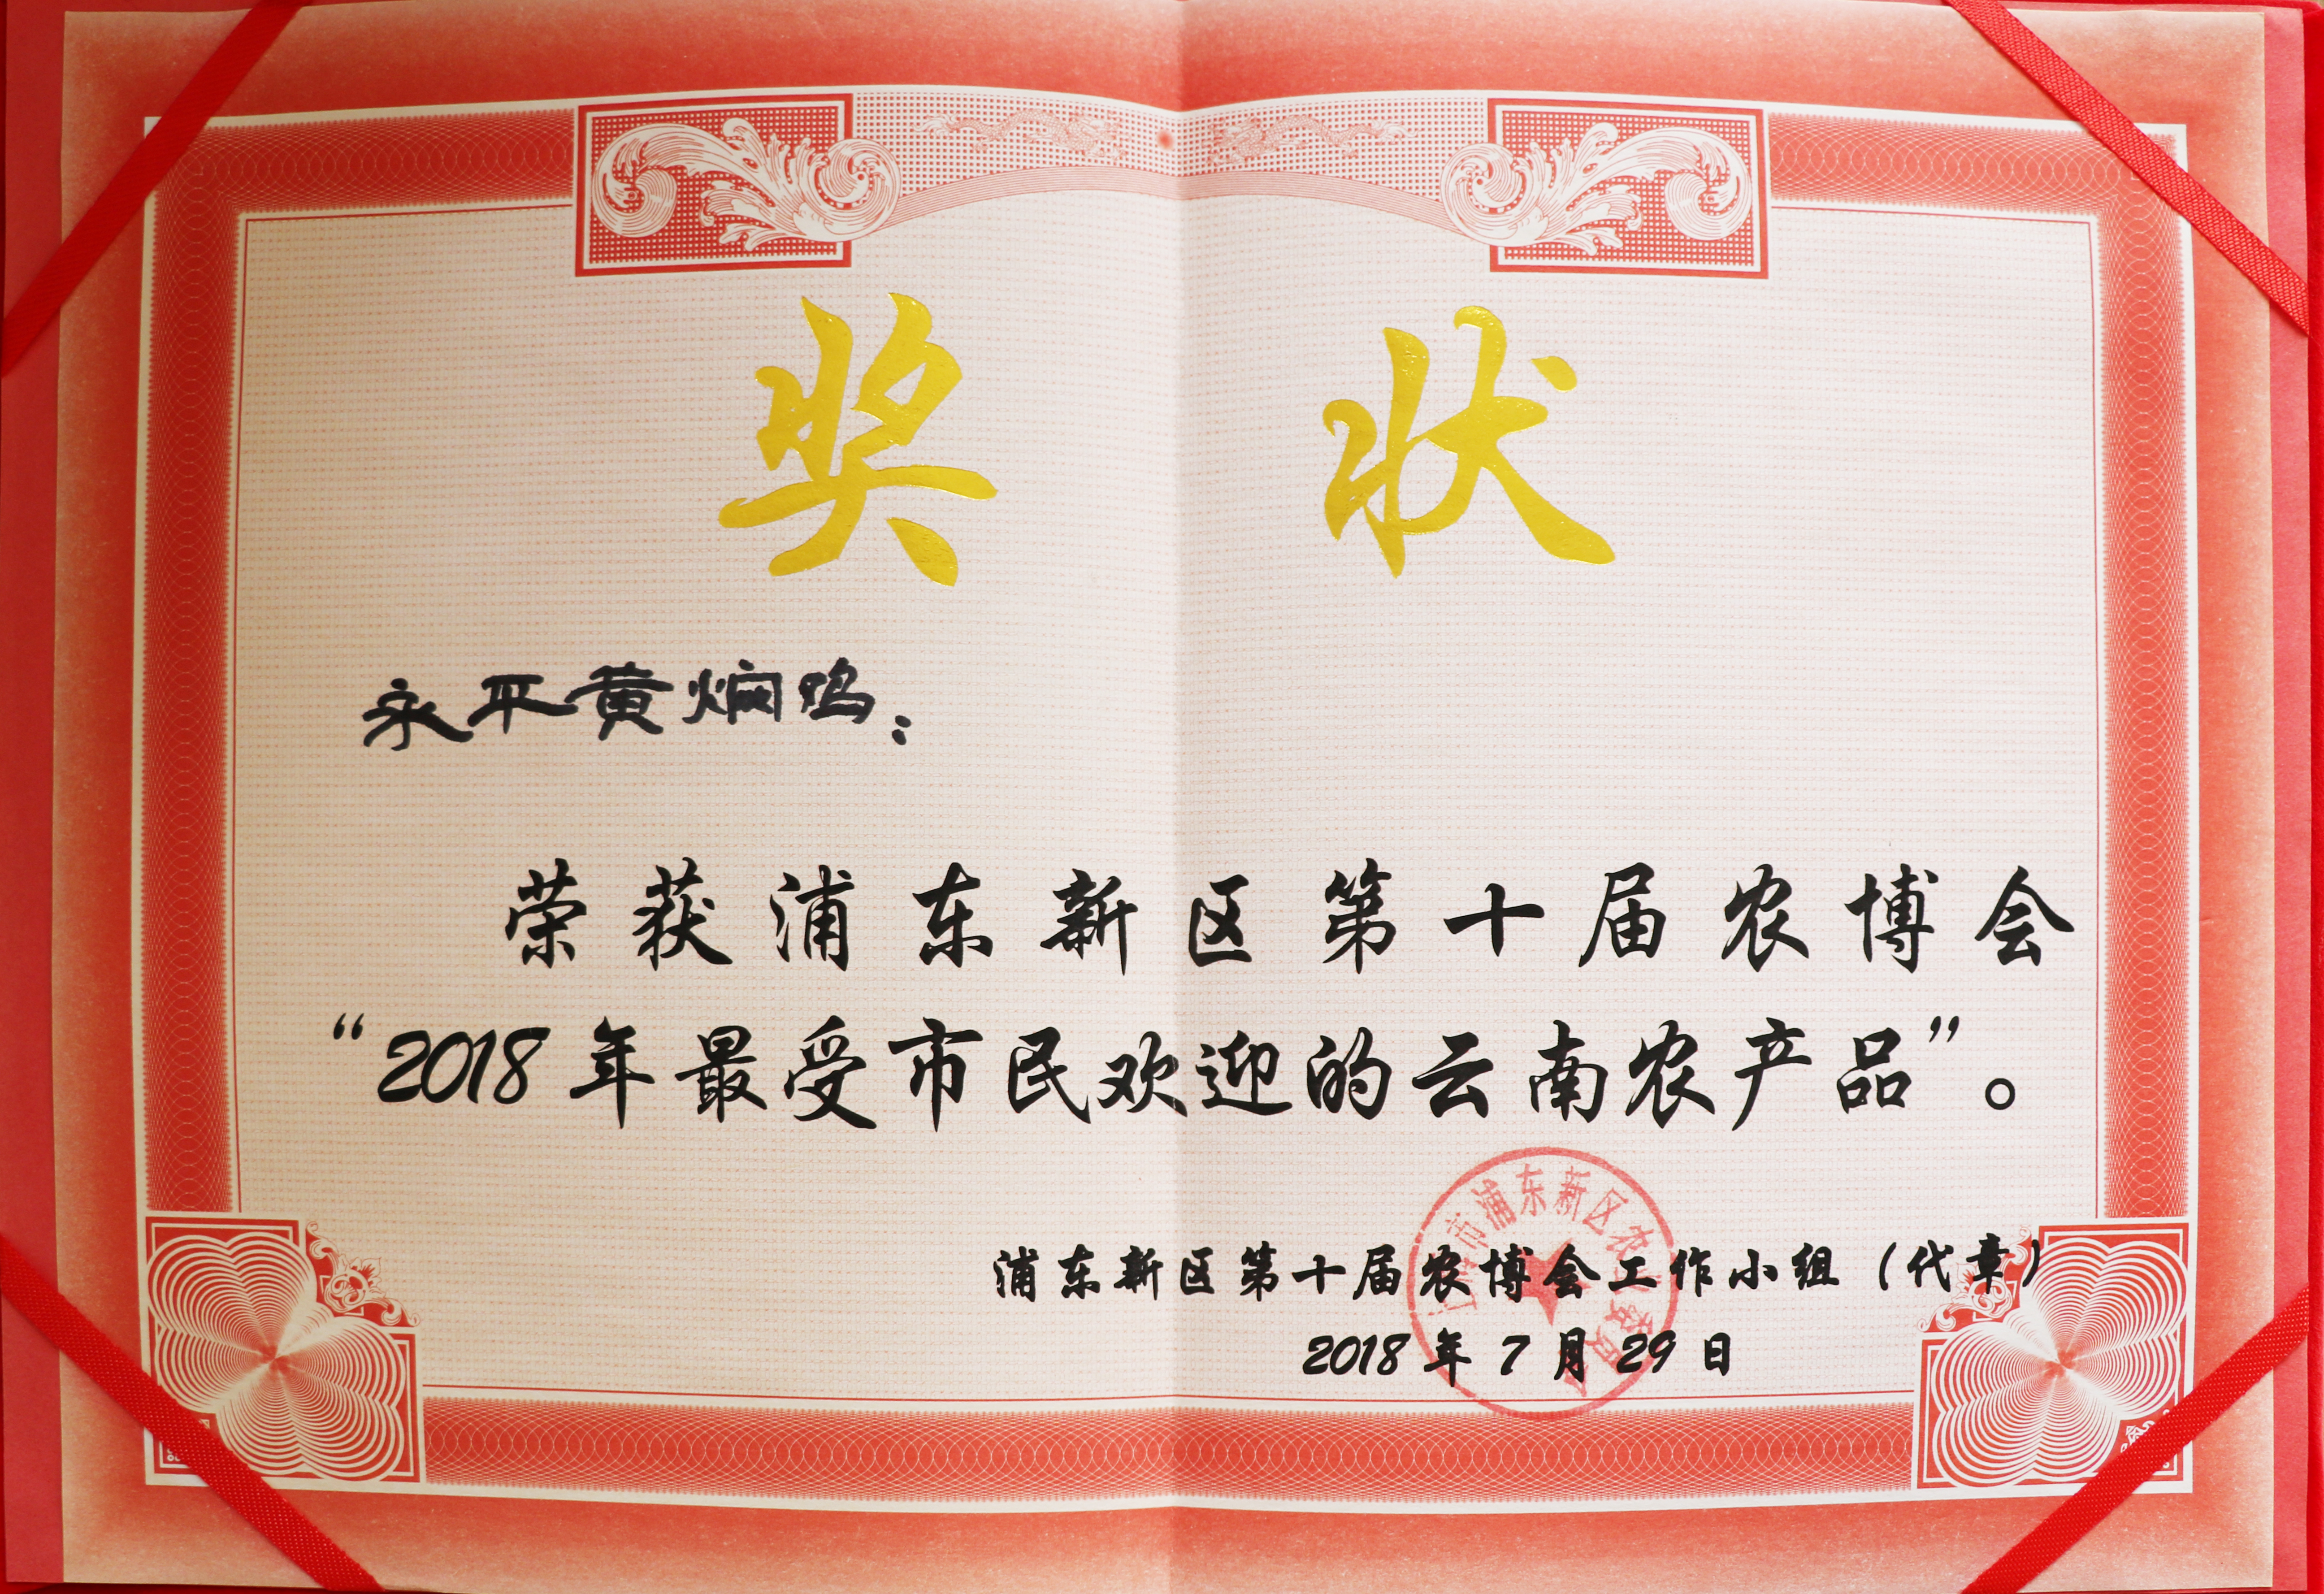 奖状
永平黄焖鸡：
荣获浦东新区第十届农博会
“2018年最受市民欢迎的云南农产品”。
市浦东新区农
浦东新区第十届农博会工作小组（代章）
2018年7月29日